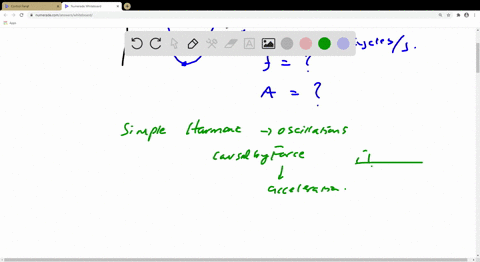 numerade.com/answers/whiteboard/
Apps
cycles/s.
f = ?
A = ?
Simple Harmonc → oscillations
caused by Force
↓
acceleration.